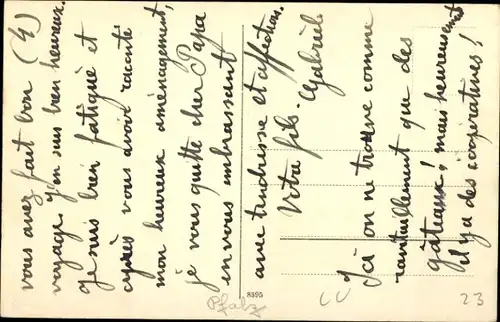 vous avez fait bon (4)
voyage j'en suis bien heureux.
Je suis bien fatigué et
après vous avoir raconté
mon heureux aménagement,
je vous quitte cher Papa
en vous embrassant
avec tendresse et affection.
Votre fils. Gabriel
Ici on ne trouve comme
ravitaillement que des
gâteaux! mais heureusement
il y a des coopératives!
8595
Pfalz
23